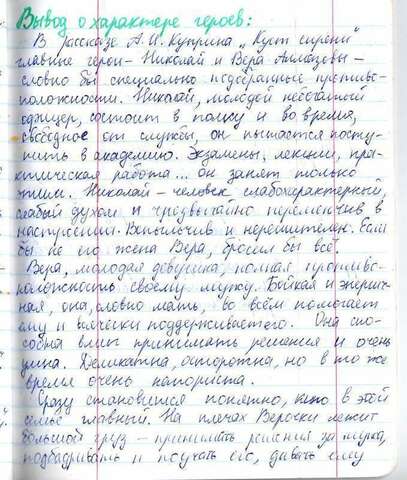 Вывод о характере героев:
В рассказе А.И. Куприна „Куст сирени"
главные герои - Николай и Вера Алмазовы -
словно бы специально подобранные противо-
положности. Николай, молодой небогатый
офицер, состоит в полку и во время,
свободное от службы, он пытается посту-
пить в академию. Экзамены, лекции, пра-
ктическая работа... он занят только
этим. Николай - человек слабохарактерный,
слабый духом и чрезвычайно переменчив в
настроении. Вспыльчив и нерешителен. Если
бы не его жена Вера, бросил бы всё.
Вера, молодая девушка, полная противо-
положность своему мужу. Бойкая и энергич-
ная, она, словно мать, во всём помогает
ему и всячески поддерживает его. Она спо-
собна влиг принимать решения и очень
умна. Деликатна, осторожна, но в то же
время очень напориста.
Сразу становится понятно, кто в этой
семье главный. На плечах Верочки лежит
большой груз - принимать решения за мужа,
подбадривать и поучать его, давать ему